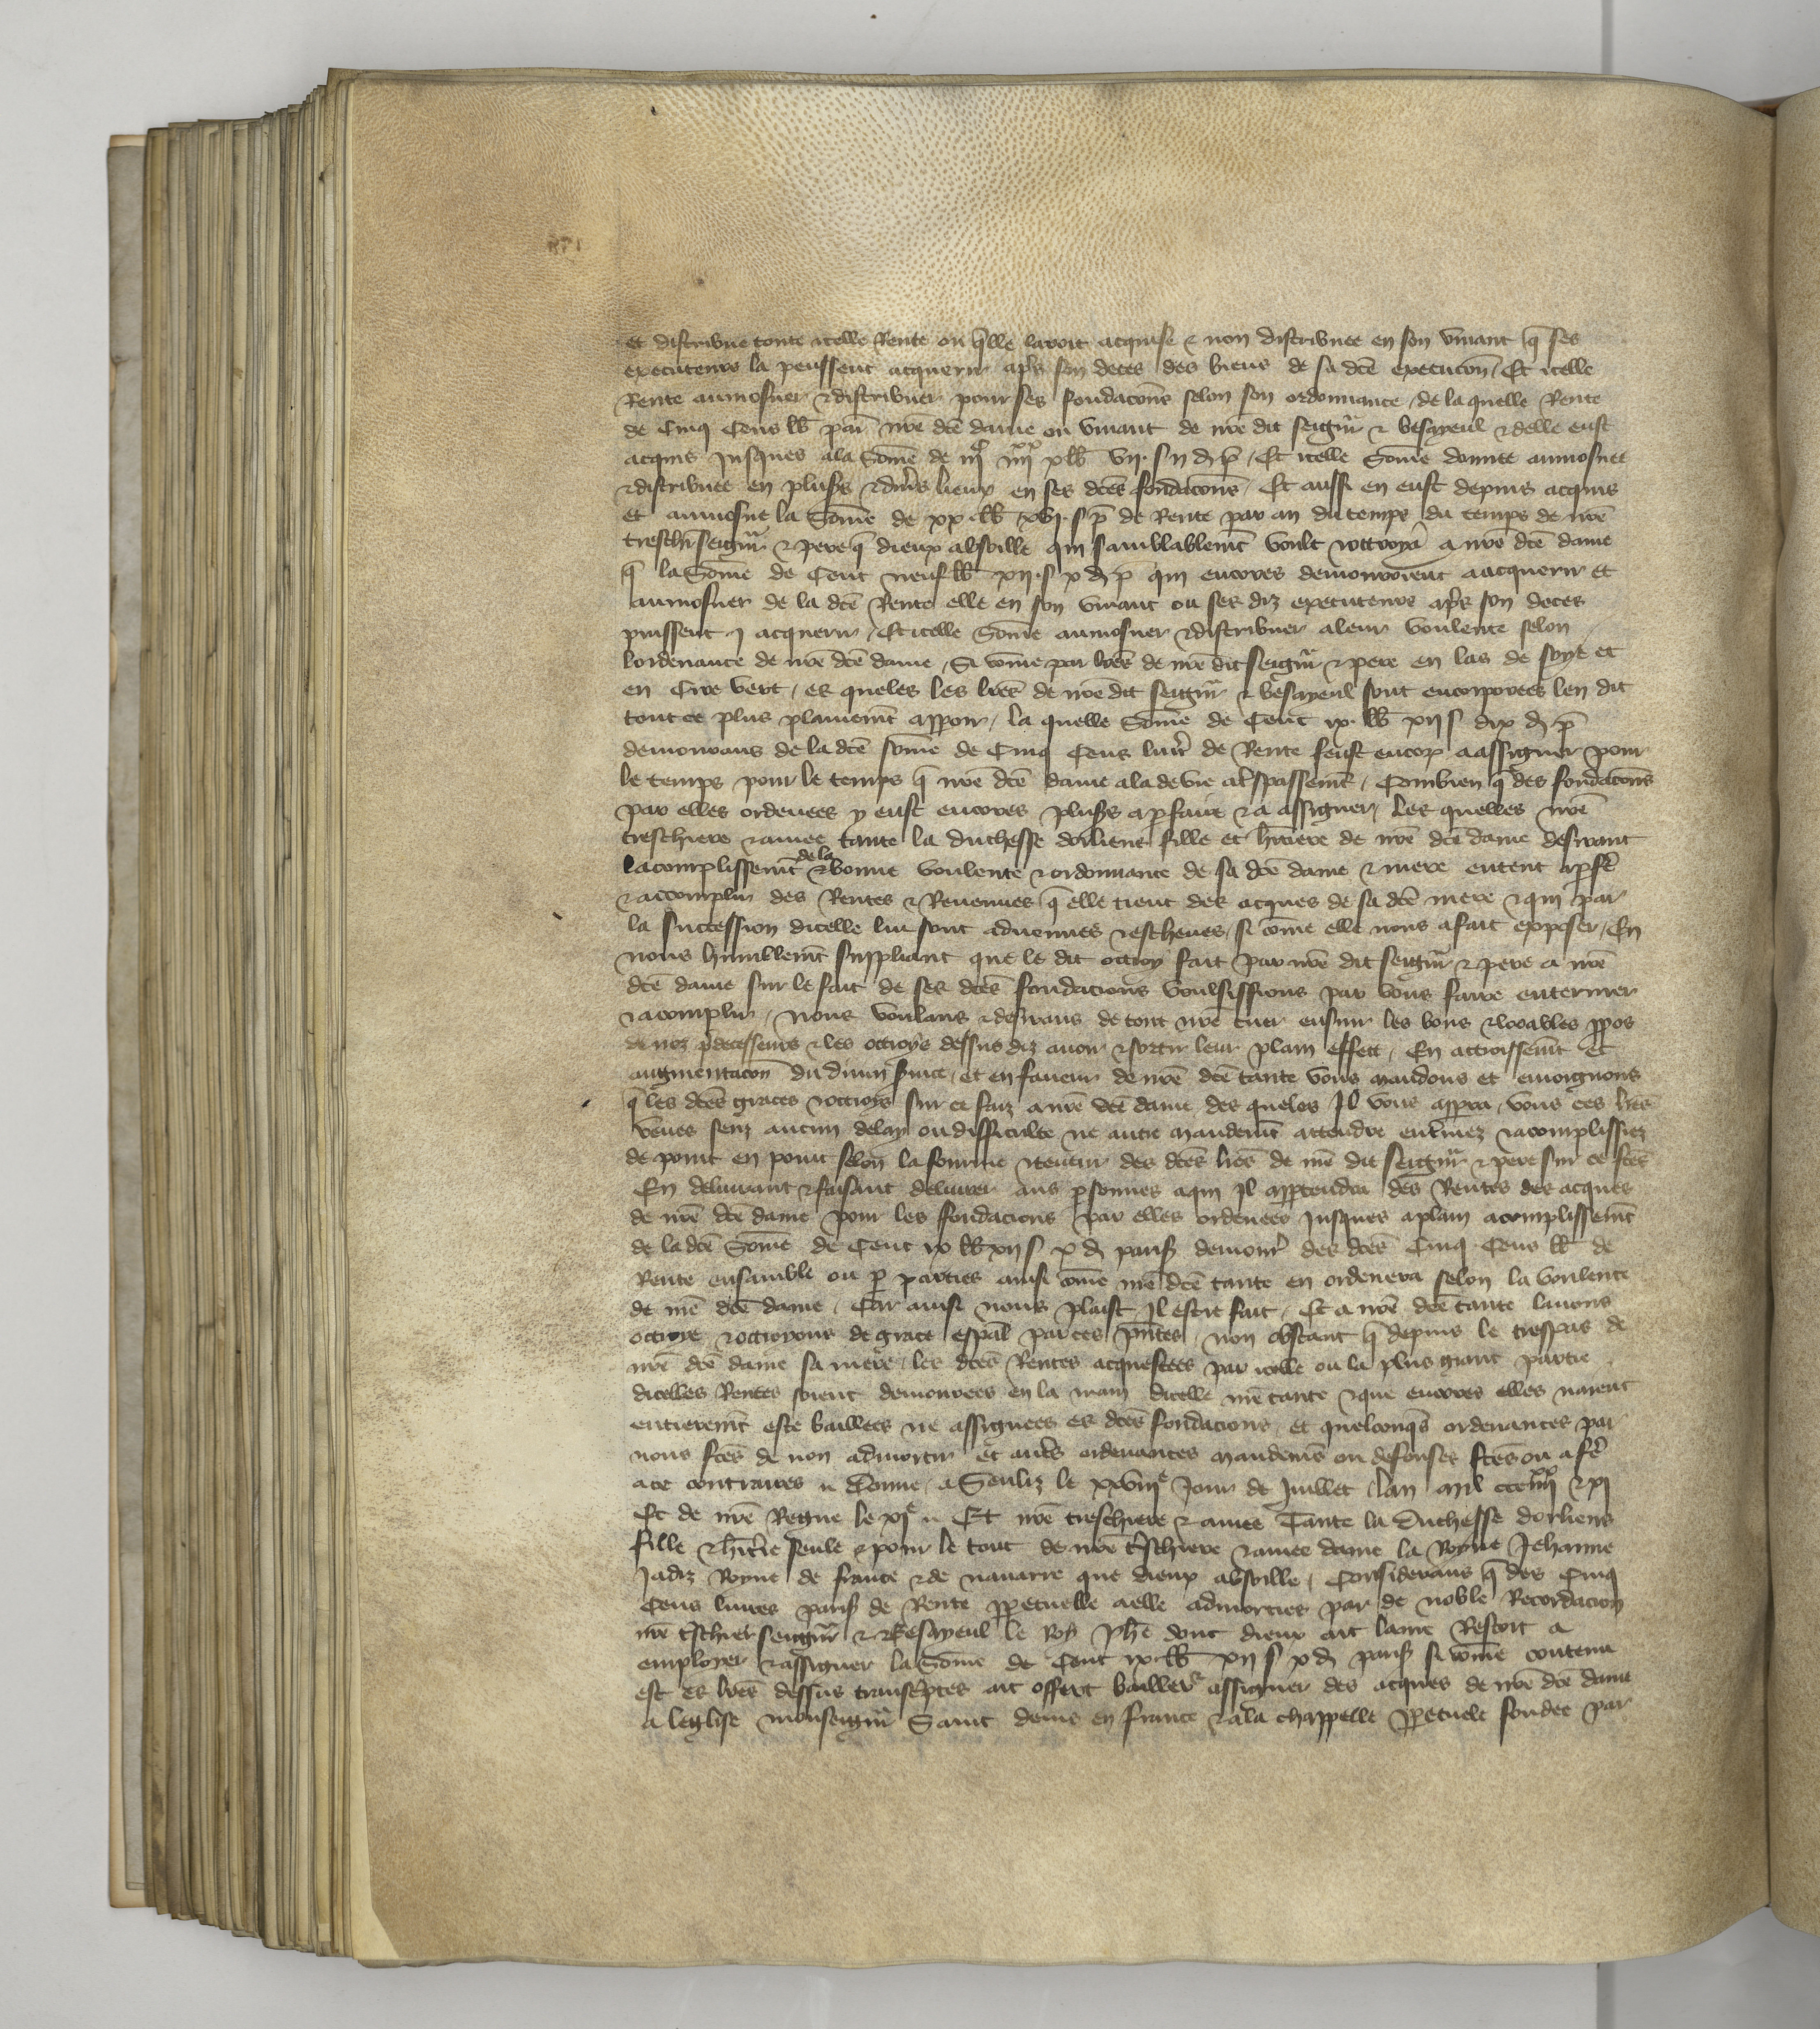 et distribue toute icelle Rente ou q̄lle lavoit acquise & non distribuee en son vivant q̄ ses
executeurs la peussent acquerir apr̄s son deces des biens de sa dc̄e execucōn / Et icelle
Rente aumosner & distribuer pour ses fondacōns selon son ordonnance / de la quelle Rente
de Cinq Cens lb̄ par̄ nr̄e dc̄e dame ou vivant de nr̄e dit seign̄r & besayeul & delle eust
acquis jusques a la Som̄e de iijᶜ iiijˣˣ x lb̄ vij s ij d p̄ / Et icelle Som̄e donnee aumosnee
& distribuee en plus̄rs & div̄rs lieux en ses dc̄es fondacōns / Et aussi en eust depuis acquis
et aumosne la Som̄e de xx lb̄ xvj s p̄ de Rente par an du temps du temps de nr̄e
treschr̄ seign̄r & pere q̄ dieux absoille qui samblablemt̄ voult & ottroya a nr̄e dc̄e dame
q̄ la Som̄e de Cent neuf lb̄ xij s x d p̄ qui encores demouroient a acquerir et
aumosner de la dc̄e Rente elle en son vivant ou ses diz executeurs apr̄s son deces
puissent j acquerir / Et icelle Som̄e aumosner & distribuer a leur voulente selon
lordenance de nr̄e dc̄e dame / Si com̄e par lr̄es de nr̄e dit seign̄r & pere en las de soye et
en Cire vert / es queles les lr̄es de nr̄e dit seign̄r & besayeul sont encorporees len dit
tout ce plus plainemt̄ apparoir / la quelle Som̄e de Cent ix lb̄ xij s dix d p̄
demourans de la dc̄e som̄e de Cinq Cens livr̄ de Rente feust encor̄ a assigner pour
le temps pour le temps q̄ nr̄e dc̄e dame ala de vie a tr̄spassemt̄ / Combien q̄ des fondacōns
par elles ordenees y eust encores plus̄rs a p̱faire & a assigner / Les quelles nr̄e
treschiere & amee tante la duchesse dorliens fille et hr̄itiere de nr̄e dc̄e dame desirant
lacomplissemt̄ de la & bonne voulente & ordonnance de sa dc̄e dame & mere entent a p̱fr̄e
& accomplir des Rentes & Revenues q̄ elle tient des acques de sa dc̄e mere & qui par
la succession dicelle lui sont advenues & escheues / si com̄e elle nous a fait exposer / En
nous humblemt̄ suppliant que le dit ottroy fait par nr̄e dit seign̄r & pere a nr̄e
dc̄e dame sur le fait de ses dc̄es fondacions voulsissions par vous faire enteriner
& acomplir / Nous voulans & desirans de tout nr̄e cuer ensuir les bons & loables p̱pos
de noz p̄decesseurs & les ottroys dessus diz avoir & sortir leur plain effect / En accroissemt̄ et
augmentacōn du divin s̄vice / et en faveur de nr̄e dc̄e tante vous mandons et enjoignons
q̄ les dc̄es graces & ottroys sur ce faiz a nr̄e dc̄e dame / des queles Il vous apparra / vous ces lr̄es
veues senz aucun delay ou difficulte ne autre mandemt̄ attendre entr̄inez & acomplissiez
de point en point selon la fourme & teneur des dc̄es lr̄es de nr̄e dit seign̄r & pere sur ce fc̄es
En delivrant & faisant delivrer aus p̱sonnes a qui Il appartendra des Rentes des acques
de nr̄e dc̄e dame pour les fondacions par elles ordenees jusques a plain acomplissemt̄
de la dc̄e Som̄e de Cent ix lb̄ xij s x d paris̄ demour̄ des dc̄es Cinq Cens lb̄ de
Rente ensamble ou p̱ parties ainsi com̄e nr̄e dc̄e tante en ordenera selon la voulente
de nr̄e dc̄e dame / Car ainsi nous plaist Il estre fait / Et a nr̄e dc̄e tante lavons
ottroye & ottroyons de grace esp̄al par ces pn̄tes / non obstant q̄ depuis le trespas de
nr̄e dc̄e dame sa mere / les dc̄es Rentes acquestees par icelle ou la plus grant partie
dicelles Rentes soient demourees en la main dicelle nr̄e tante & que encores elles naient
entieremt̄ este baillees ne assignees es dc̄es fondacions / et quelconq̄s ordenances par
nous fc̄es de non admortir et autr̄s ordenances mandemt̄s ou defenses fc̄es ou a fr̄e
a ce contraires // Donne a Senliz le xxviijᵉ Jour de Juillet lan mil ccciiijˣˣ & xj
Et de nr̄e Regne le xjᵉ // Et nr̄e treschiere & amee Tante la Duchesse dorliens
fille & hr̄itier̄e seule & pour le tout de nr̄e tr̄schiere & amee dame la Royne Jehanne
Jadiz Royne de france & de navarre que dieux absoille / Considerans q̄ des Cinq
Cens livres paris̄ de Rente p̱petuelle a elle admorties par de noble Recordacion
nr̄e tr̄schier seign̄r & Besayeul le Roy Ph̄e dont dieux ait lame Restoit a
employer & assigner la Som̄e de Cent ix lb̄ xij s x d paris̄ si com̄e contenu
est es lr̄es dessus transcr̄iptes ait offert bailler & assigner des acques de nr̄e dc̄e dame
a leglise monseign̄r Saint denis en france & a la chappelle p̱petuele fondee par